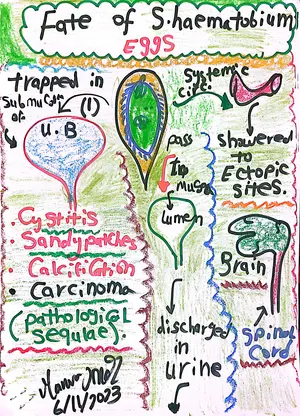 Fate of S.haematobium
EGGS
trapped in
Submucosa
of
(1)
U.B
Cystitis
Sandy patches
Calcifition
• Carcinoma
(pathological
sequlae).
6/11/2023
pass
Mucosa
lumen
discharged
in
urine
Systemic
circ.
showered
to
Ectopic
sites.
Brain
spinal
Cord